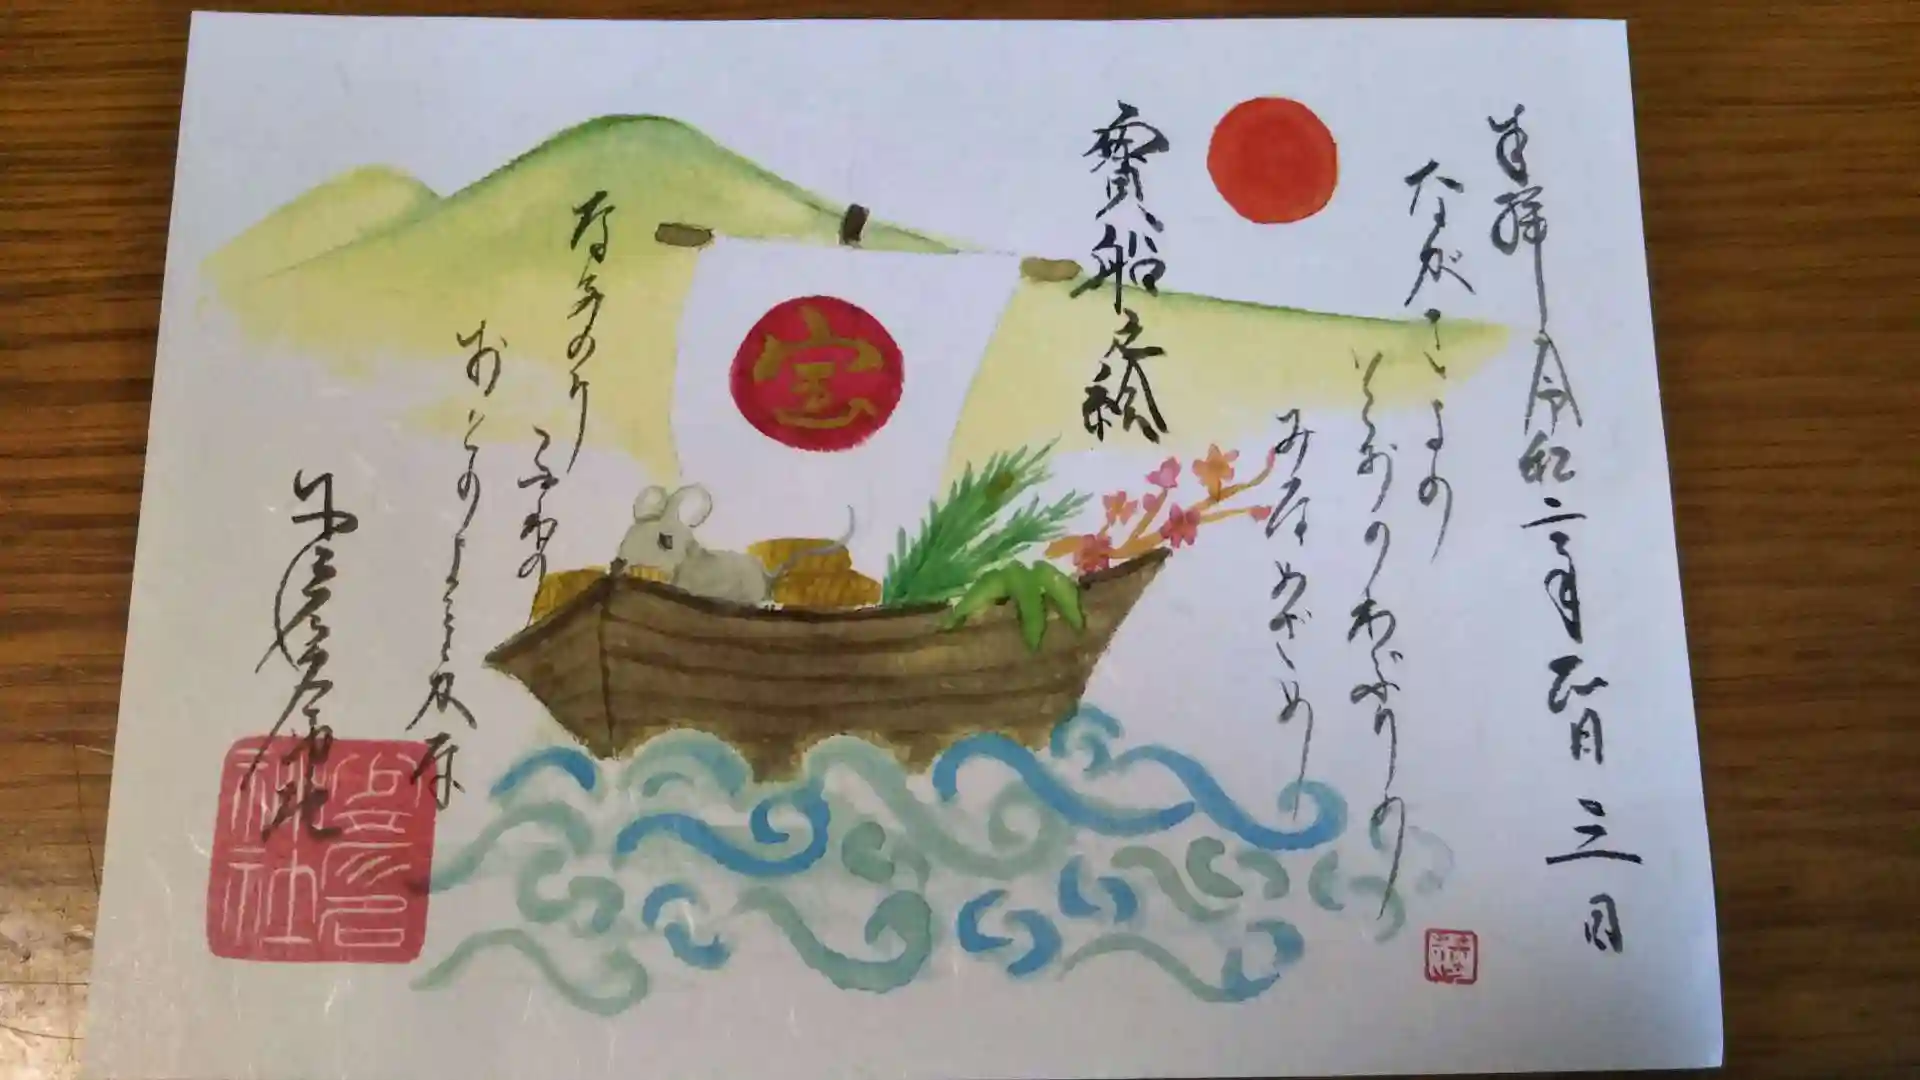 奉拝 令和二年正月三日
ながきよの
とおのねぶりの
みなめざめ
寶船之絵
宝
なみのり
ふねの
おとのよき哉
神社